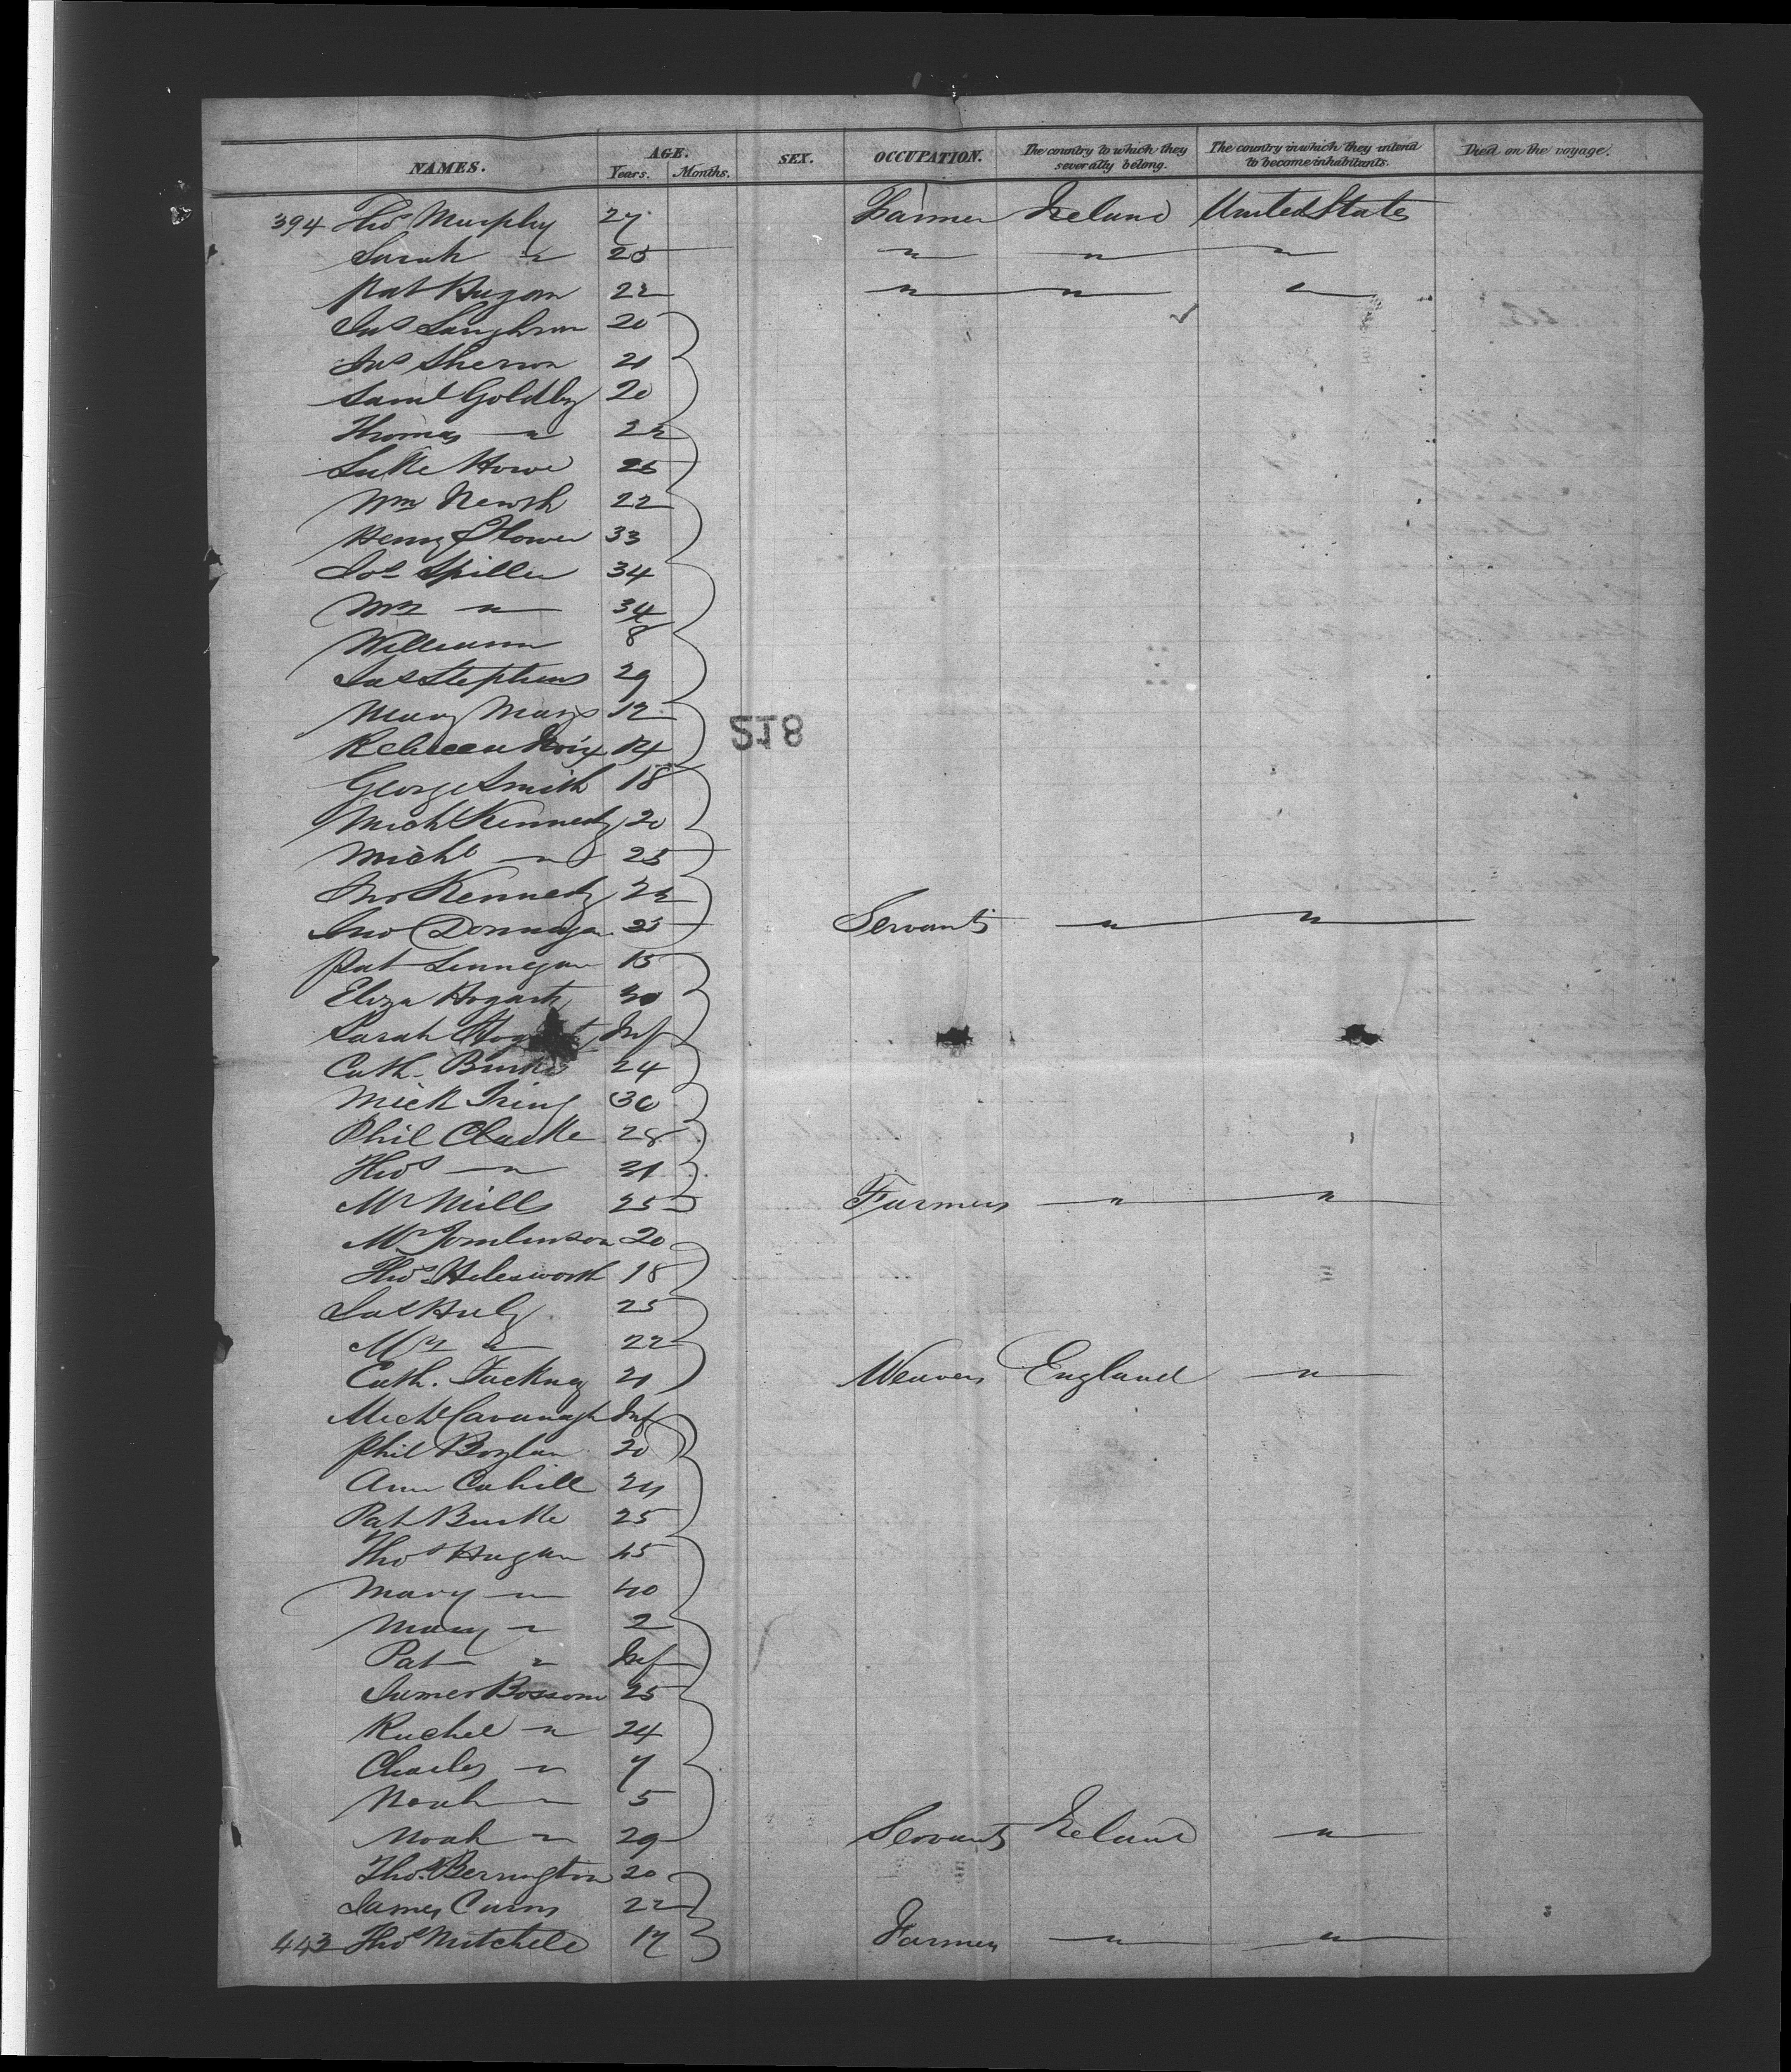 NAMES. AGE. Years. Months. SEX. OCCUPATION. The country to which they severally belong. The country in which they intend to become inhabitants. Died on the voyage.
394 Thos Murphy 27 Farmer Ireland United States
Sarah " 25 " " "
Pat Hugan 22 " " "
Jas Laughran 20
Jas Sherron 21
Saml Goldby 20
Thomas " 22
Luke Howe 26
Wm Newth 22
Henry Flower 33
Jos Spiller 34
Wm " 34
William 8
Jas Stephens 29
Mary Mays 12
Rebecca 14
218
George Smith 18
Mich Kennedy 20
Michl " 25
Jno Kennedy 22
Jno Donnegan 25 Servants " "
Pat Linnegan 15
Eliza Hogarty 30
Sarah Inf
Cath. Burke 24
Mick 30
Phil Clarke 28
Thos " 31
Mr Mills 25 Farmers " "
Mr Tomlinson 20
Thos Helesworth 18
Jas Huly 25
" 22
Cath. 21 Weavers England "
Michl Cavanagh Inf
Phil Boylan 20
Ann Cahill 24
Pat Burke 25
Thos Hugan 45
Mary " 40
Mary " 2
Pat " Inf
James Bossom 25
Rachel " 24
Charles " 7
Noah " 5
Noah " 29 Servants Ireland "
Thos. Berrington 20
James Cairns 22
443 Thos Mitchell 17 Farmer " "